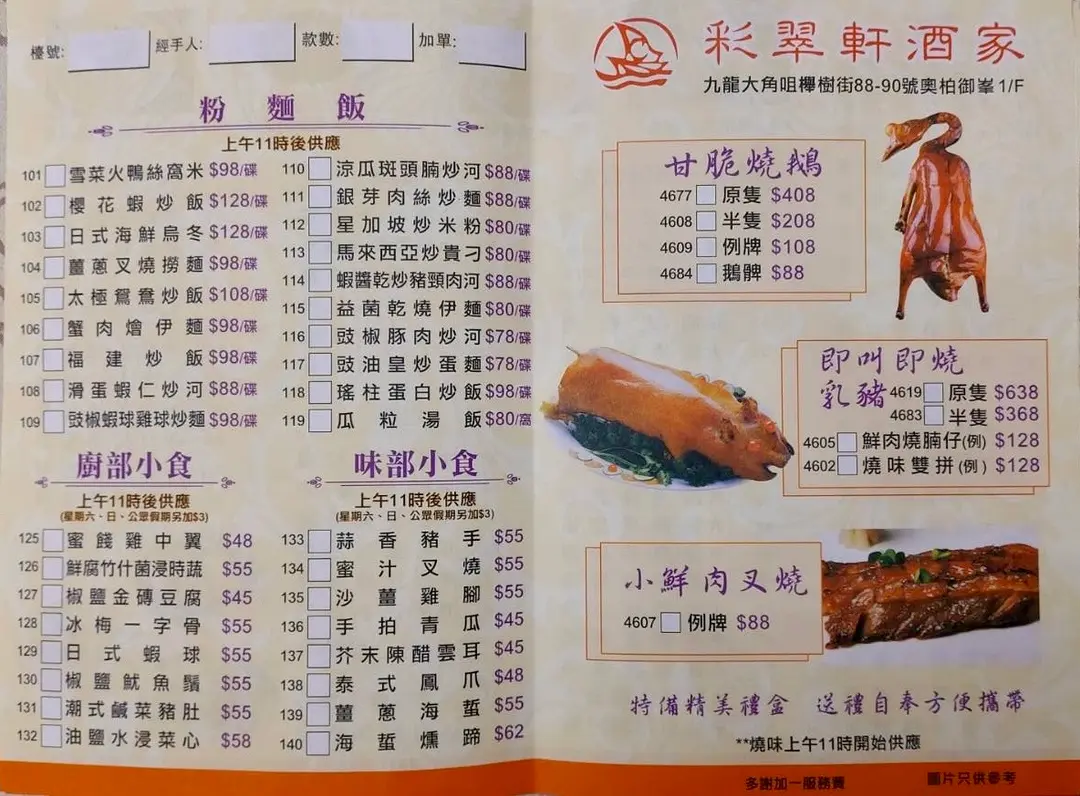 檯號:
經手人:
款數:
加單:
粉麵飯
上午11時後供應
101 雪菜火鴨絲窩米 $98/碟
102 櫻花蝦炒飯 $128/碟
103 日式海鮮烏冬 $128/碟
104 薑蔥叉燒撈麵 $98/碟
105 太極鴛鴦炒飯 $108/碟
106 蟹肉燴伊麵 $98/碟
107 福建炒飯 $98/碟
108 滑蛋蝦仁炒河 $88/碟
109 豉椒蝦球雞球炒麵 $98/碟
110 涼瓜斑頭腩炒河 $88/碟
111 銀芽肉絲炒麵 $88/碟
112 星加坡炒米粉 $80/碟
113 馬來西亞炒貴刁 $80/碟
114 蝦醬乾炒豬頸肉河 $88/碟
115 益菌乾燒伊麵 $80/碟
116 豉椒豚肉炒河 $78/碟
117 豉油皇炒蛋麵 $78/碟
118 瑤柱蛋白炒飯 $98/碟
119 瓜粒湯飯 $80/窩
廚部小食
上午11時後供應
(星期六、日、公眾假期另加$3)
125 蜜餞雞中翼 $48
126 鮮腐竹什菌浸時蔬 $55
127 椒鹽金磚豆腐 $45
128 冰梅一字骨 $55
129 日式蝦球 $55
130 椒鹽魷魚鬚 $55
131 潮式鹹菜豬肚 $55
132 油鹽水浸菜心 $58
味部小食
上午11時後供應
(星期六、日、公眾假期另加$3)
133 蒜香豬手 $55
134 蜜汁叉燒 $55
135 沙薑雞腳 $55
136 手拍青瓜 $45
137 芥末陳醋雲耳 $45
138 泰式鳳爪 $48
139 薑蔥海蜇 $55
140 海蜇燻蹄 $62
彩翠軒酒家
九龍大角咀櫸樹街88-90號奧柏御峯1/F
甘脆燒鵝
4677 原隻 $408
4608 半隻 $208
4609 例牌 $108
4684 鵝髀 $88
即叫即燒
乳豬
4619 原隻 $638
4683 半隻 $368
4605 鮮肉燒腩仔(例) $128
4602 燒味雙拼(例) $128
小鮮肉叉燒
4607 例牌 $88
特備精美禮盒 送禮自奉方便攜帶
**燒味上午11時開始供應
多謝加一服務費
圖片只供參考